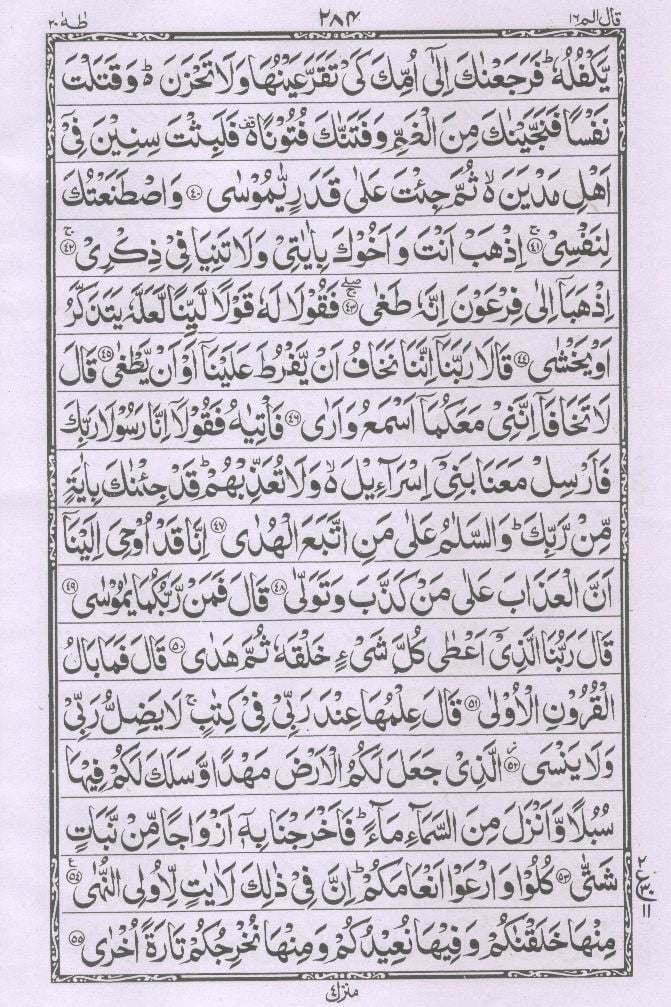 قال الم ١٦ ٢٨٤ طٰهٰ ٢٠
يَّكْفُلُهٗ ؕ فَرَجَعْنٰكَ اِلٰۤى اُمِّكَ كَىْ تَقَرَّ عَيْنُهَا وَلَا تَحْزَنَ ؕ۬ وَقَتَلْتَ
نَفْسًا فَنَجَّيْنٰكَ مِنَ الْغَمِّ وَفَتَنّٰكَ فُتُوْنًا ࣞ۬ فَلَبِثْتَ سِنِيْنَ فِىْۤ
اَهْلِ مَدْيَنَ ۙ۬ ثُمَّ جِئْتَ عَلٰى قَدَرٍ يّٰمُوْسٰى ﴿۴۰﴾ وَاصْطَنَعْتُكَ
لِنَفْسِىْ ۚ﴿۴۱﴾ اِذْهَبْ اَنْتَ وَاَخُوْكَ بِاٰيٰتِىْ وَلَا تَنِيَا فِىْ ذِكْرِىْ ۚ﴿۴۲﴾
اِذْهَبَاۤ اِلٰى فِرْعَوْنَ اِنَّهٗ طَغٰى ۖۚ﴿۴۳﴾ فَقُوْلَا لَهٗ قَوْلًا لَّيِّنًا لَّعَلَّهٗ يَتَذَكَّرُ
اَوْ يَخْشٰى ﴿۴۴﴾ قَالَا رَبَّنَاۤ اِنَّنَا نَخَافُ اَنْ يَّفْرُطَ عَلَيْنَاۤ اَوْ اَنْ يَّطْغٰى ﴿۴۵﴾ قَالَ
لَا تَخَافَاۤ اِنَّنِىْ مَعَكُمَاۤ اَسْمَعُ وَاَرٰى ﴿۴۶﴾ فَاْتِيٰهُ فَقُوْلَاۤ اِنَّا رَسُوْلَا رَبِّكَ
فَاَرْسِلْ مَعَنَا بَنِىْۤ اِسْرَآءِيْلَ ۙ۬ وَلَا تُعَذِّبْهُمْ ؕ قَدْ جِئْنٰكَ بِاٰيَةٍ
مِّنْ رَّبِّكَ ؕ وَالسَّلٰمُ عَلٰى مَنِ اتَّبَعَ الْهُدٰى ﴿۴۷﴾ اِنَّا قَدْ اُوْحِىَ اِلَيْنَاۤ
اَنَّ الْعَذَابَ عَلٰى مَنْ كَذَّبَ وَتَوَلّٰى ﴿۴۸﴾ قَالَ فَمَنْ رَّبُّكُمَا يٰمُوْسٰى ﴿۴۹﴾
قَالَ رَبُّنَا الَّذِىْۤ اَعْطٰى كُلَّ شَىْءٍ خَلْقَهٗ ثُمَّ هَدٰى ﴿۵۰﴾ قَالَ فَمَا بَالُ
الْقُرُوْنِ الْاُوْلٰى ﴿۵۱﴾ قَالَ عِلْمُهَا عِنْدَ رَبِّىْ فِىْ كِتٰبٍ ۚ لَا يَضِلُّ رَبِّىْ
وَلَا يَنْسَى ﴿۵۲﴾ الَّذِىْ جَعَلَ لَكُمُ الْاَرْضَ مَهْدًا وَّسَلَكَ لَكُمْ فِيْهَا
سُبُلًا وَّاَنْزَلَ مِنَ السَّمَآءِ مَآءً ؕ فَاَخْرَجْنَا بِهٖۤ اَزْوَاجًا مِّنْ نَّبَاتٍ
شَتّٰى ﴿۵۳﴾ كُلُوْا وَارْعَوْا اَنْعَامَكُمْ ؕ اِنَّ فِىْ ذٰلِكَ لَاٰيٰتٍ لِّاُولِى النُّهٰى ﴿۵۴﴾
مِنْهَا خَلَقْنٰكُمْ وَفِيْهَا نُعِيْدُكُمْ وَمِنْهَا نُخْرِجُكُمْ تَارَةً اُخْرٰى ﴿۵۵﴾
منزل ٤